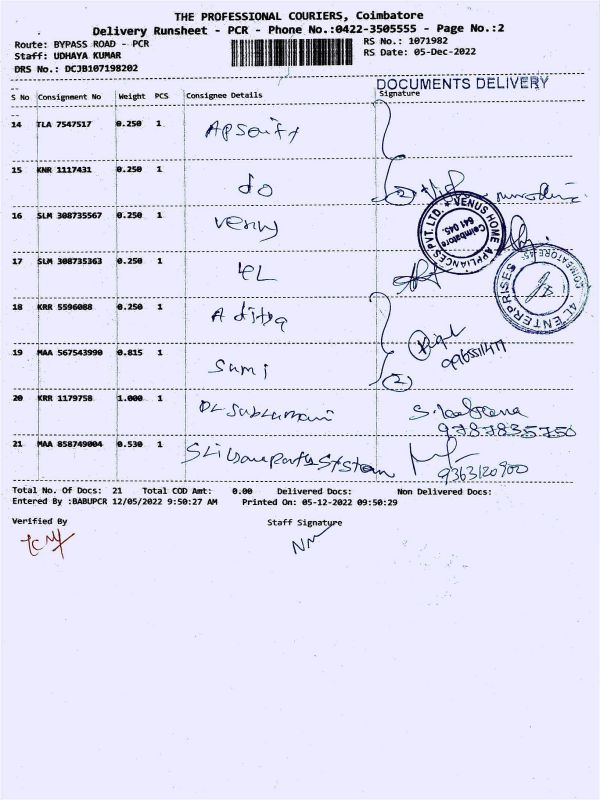 THE PROFESSIONAL COURIERS, Coimbatore
Delivery Runsheet - PCR - Phone No.:0422-3505555 - Page No.:2
Route: BYPASS ROAD - PCR
RS No.: 1071982
Staff: UDHAYA KUMAR
RS Date: 05-Dec-2022
DRS No.: DCJB107198202
DOCUMENTS DELIVERY
S No Consignment No Weight PCS Consignee Details Signature
14 TLA 7547517 0.250 1
15 KNR 1117431 0.250 1 do
2
16 SLM 308735567 0.250 1
VENUS HOME APPLIANCES PVT. LTD.
Coimbatore
641 045.
17 SLM 308735363 0.250 1 4L
4L ENTERPRISES
COIMBATORE-45
18 KRR 5596088 0.250 1 Aditya
19 MAA 567543990 0.815 1 Sumi
2
20 KRR 1179758 1.000 1
9787835750
21 MAA 858749004 0.530 1
9363120900
Total No. Of Docs: 21 Total COD Amt: 0.00 Delivered Docs: Non Delivered Docs:
Entered By :BABUPCR 12/05/2022 9:50:27 AM Printed On: 05-12-2022 09:50:29
Verified By Staff Signature